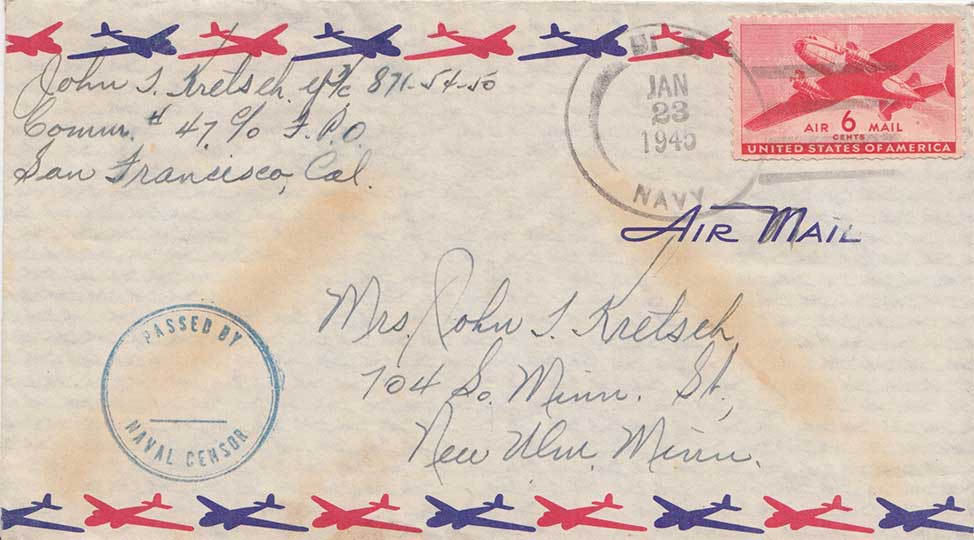 John T. Kretsch. Y 3/c 871-54-50
Comm. # 47 c/o F.P.O.
San Francisco, Cal.
JAN
23
1945
NAVY
AIR 6 MAIL
CENTS
UNITED STATES OF AMERICA
AIR MAIL
PASSED BY
NAVAL CENSOR
Mrs. John T. Kretsch,
704 So. Minn. St.,
New Ulm, Minn.